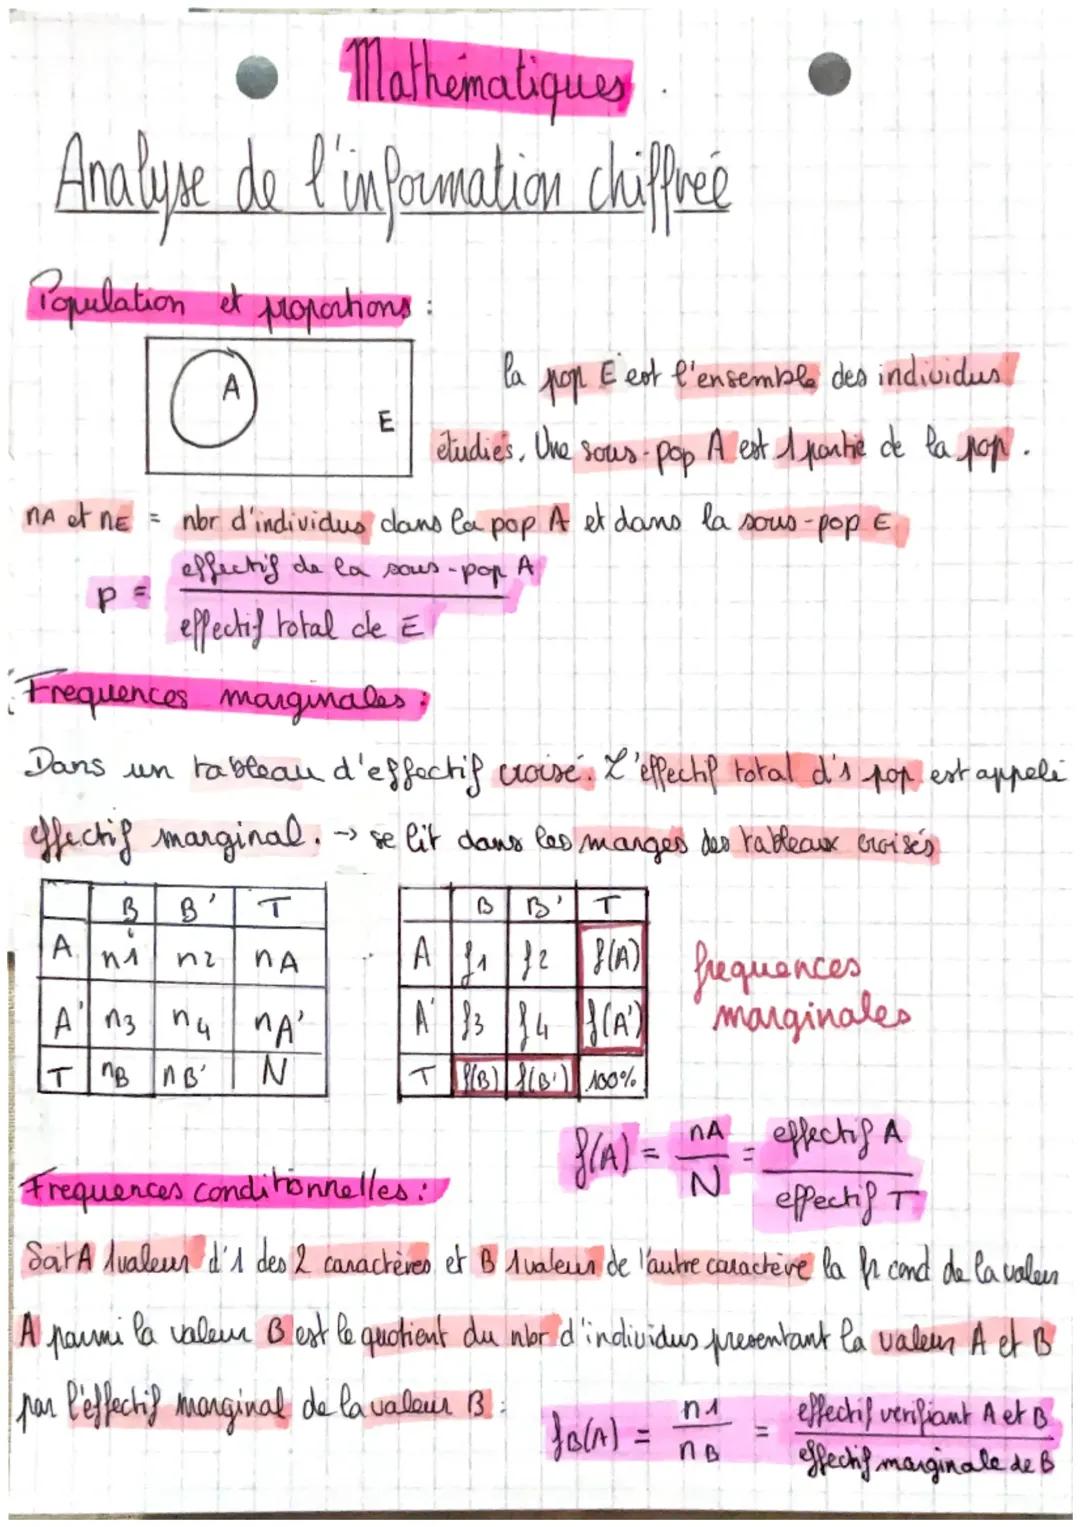 Mathématiques
Analyse de l'information chiffrée
Population et proportions :
A
E
la pop E est l'ensemble des individus
étudiés. Une sous-pop A est 1 partie de la pop.
nA et nE = nbr d'individus dans la pop A et dans la sous-pop E
p = effectif de la sous-pop A
effectif total de E
Frequences marginales :
Dans un tableau d'effectif croisé. L'effectif total d'1 pop est appelé
effectif marginal. -> se lit dans les marges des tableaux croisés
B B' T
A n1 n2 nA
A' n3 n4 nA'
T nB nB' N
B B' T
A f1 f2 f(A)
A' f3 f4 f(A')
T f(B) f(B') 100%
frequences
marginales
f(A) = nA = effectif A
N effectif T
Frequences conditionnelles :
Soit A 1 valeur d'1 des 2 caractères et B 1 valeur de l'autre caractère la fr cond de la valeur
A parmi la valeur B est le quotient du nbr d'individus presentant la valeur A et B
par l'effectif marginal de la valeur B :
fB(A) = n1 = effectif verifiant A et B
nB effectif marginale de B